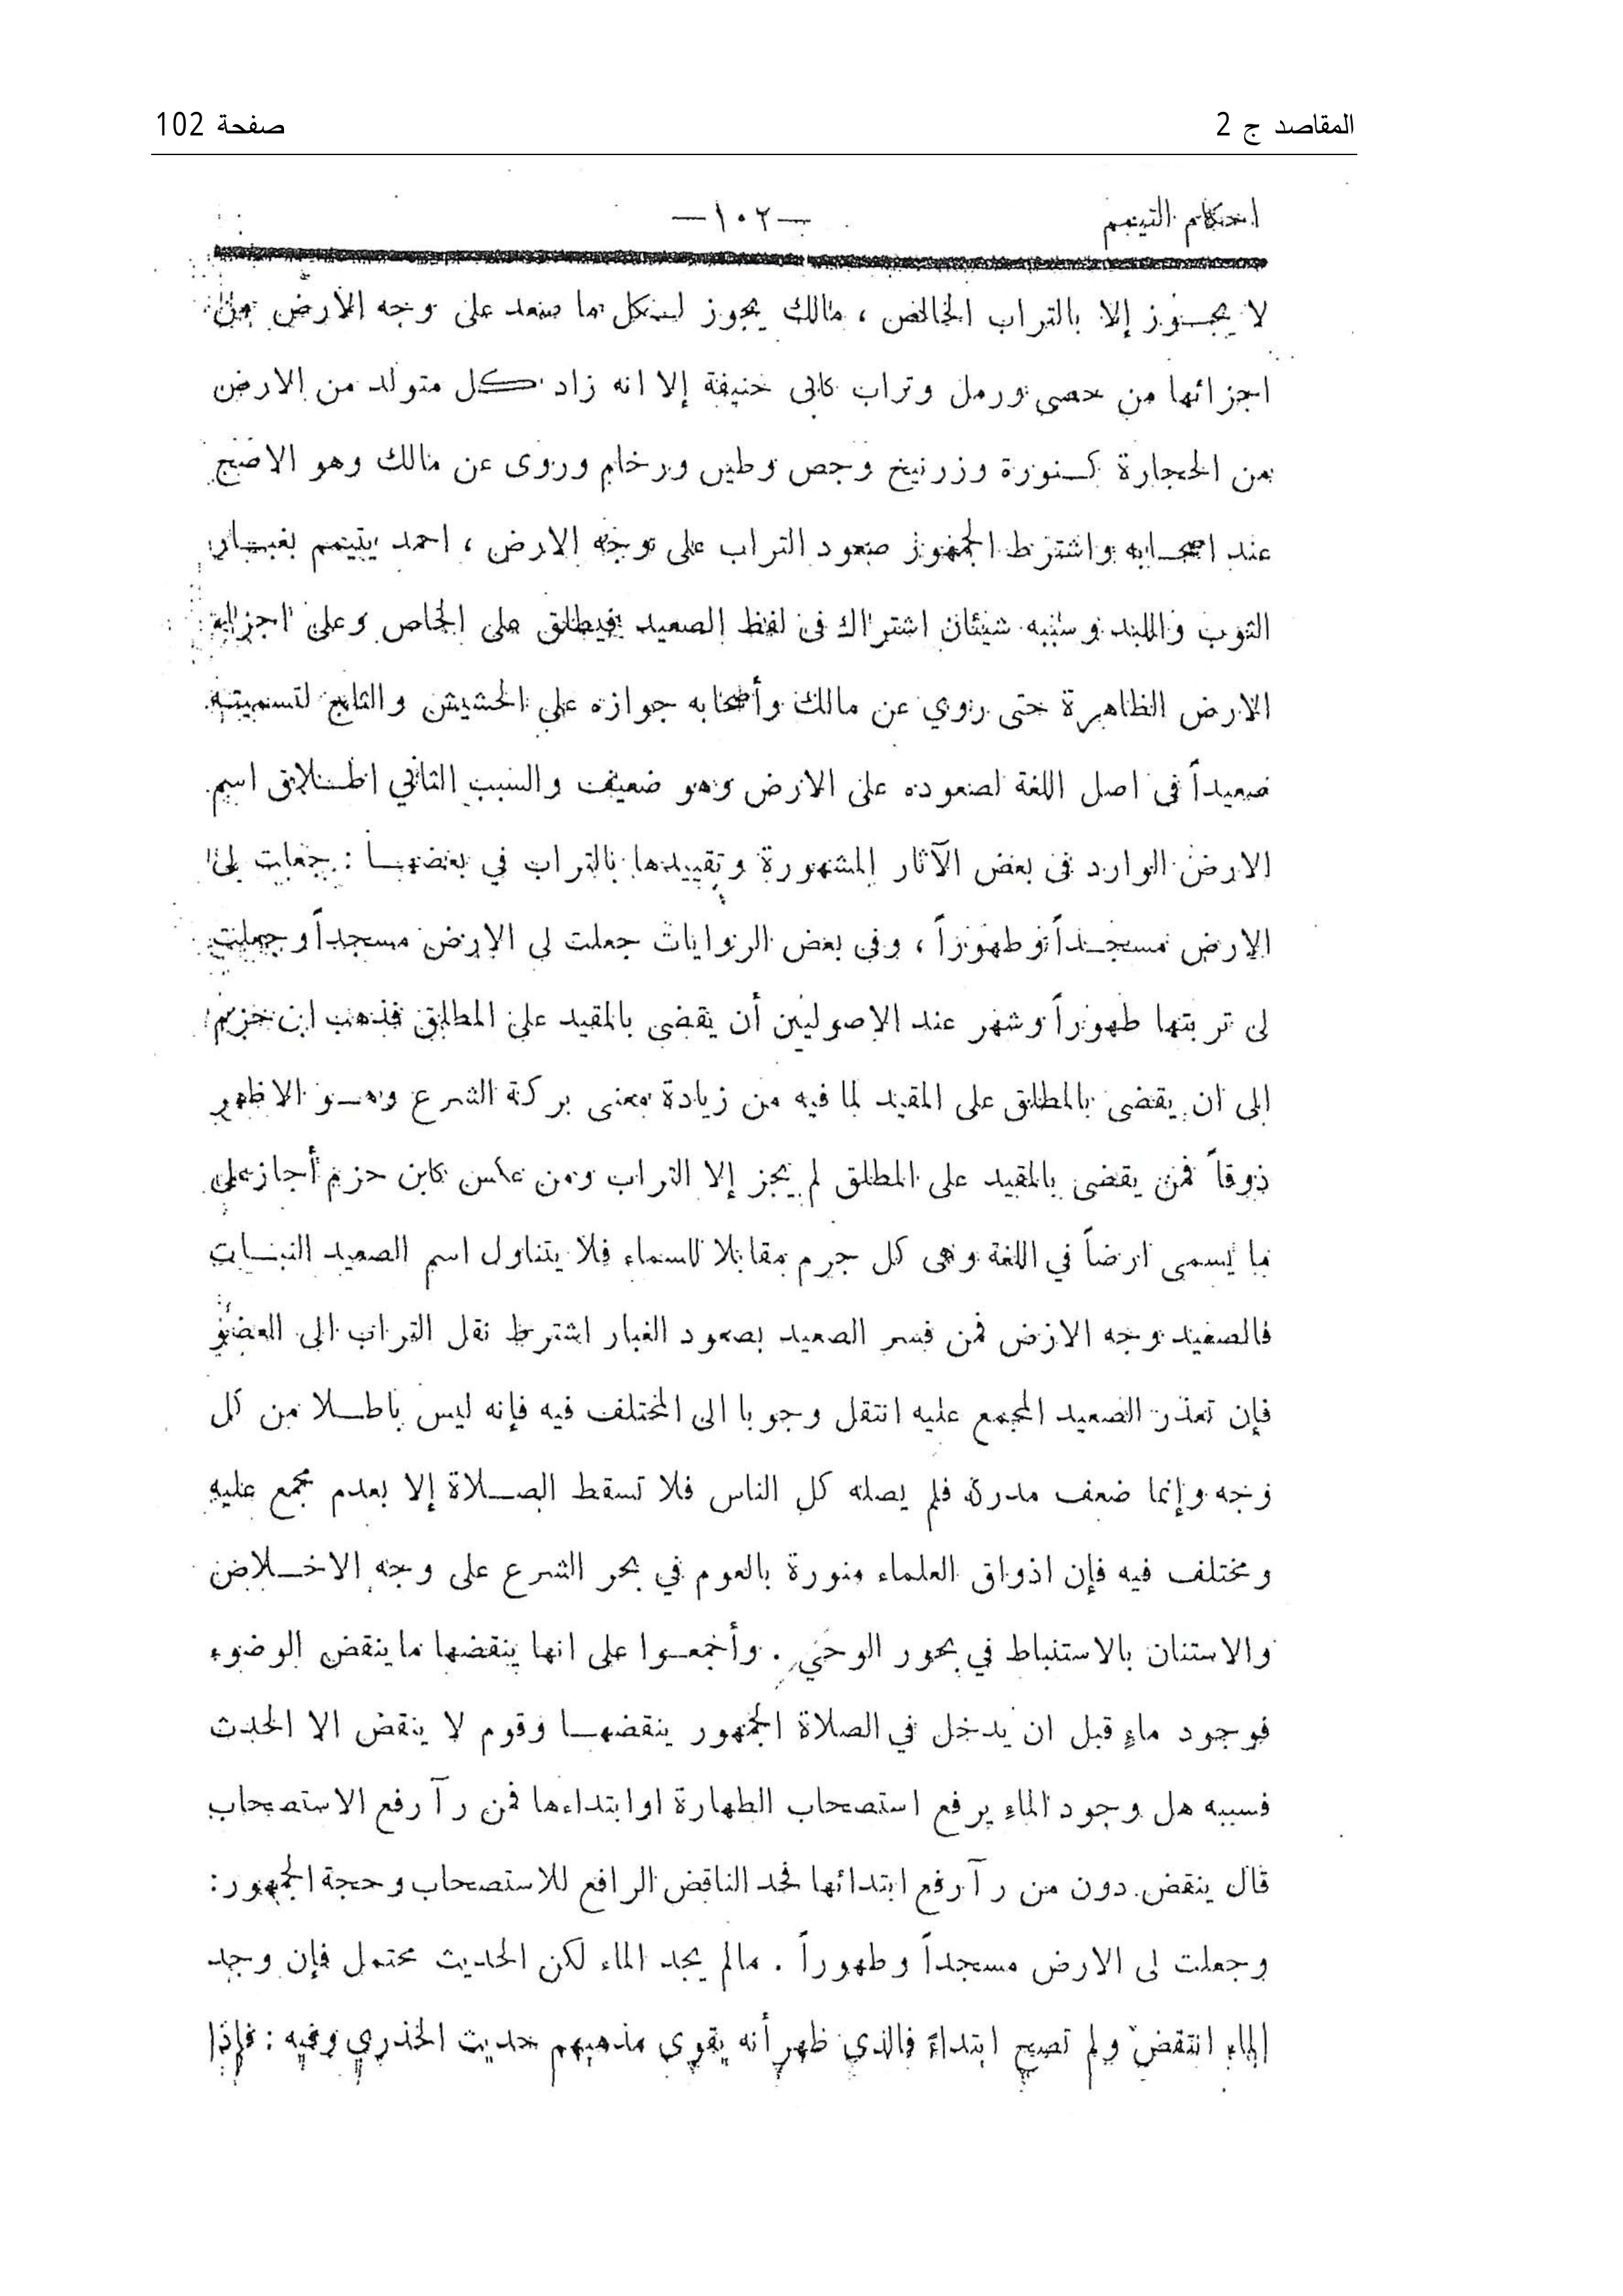 المقاصد ج 2
صفحة 102
احكام التيمم
—١٠٢—
لا يجوز إلا بالتراب الخالص ، مالك يجوز لكل ما صعد على وجه الارض من
اجزائها من حصى ورمل وتراب كابى حنيفة إلا انه زاد كل متولد من الارض
من الحجارة كنورة وزرنيخ وجص وطين ورخام وروى عن مالك وهو الاصح
عند اصحابه واشترط الجمهور صعود التراب على وجه الارض ، احمد يتيمم بغبار
الثوب واللبد وسببه شيئان اشتراك فى لفظ الصعيد فيطلق على الخاص وعلى اجزاء
الارض الظاهرة حتى روي عن مالك وأصحابه جوازه على الحشيش والثلج لتسميته
صعيداً فى اصل اللغة لصعوده على الارض وهو ضعيف والسبب الثاني اطلاق اسم
الارض الوارد فى بعض الآثار المشهورة وتقييدها بالتراب في بعضها : جعلت لى
الارض مسجداً وطهوراً ، وفى بعض الروايات جعلت لى الارض مسجداً وجعلت
لى تربتها طهوراً وشهر عند الاصوليين أن يقضى بالمقيد على المطلق فذهب ابن حزم
إلى ان يقضى بالمطلق على المقيد لما فيه من زيادة معنى بركة الشرع وهو الاظهر
ذوقاً فمن يقضى بالمقيد على المطلق لم يجز إلا التراب ومن عكس كابن حزم أجاز على
ما يسمى ارضاً في اللغة وهى كل جرم مقابلا للسماء فلا يتناول اسم الصعيد النبات
فالصعيد وجه الارض فمن فسر الصعيد بصعود الغبار اشترط نقل التراب الى العضو
فإن تعذر الصعيد المجمع عليه انتقل وجوبا الى المختلف فيه فإنه ليس باطلا من كل
وجه وإنما ضعف مدركه فلم يصله كل الناس فلا تسقط الصلاة إلا بعدم مجمع عليه
ومختلف فيه فإن اذواق العلماء منورة بالعوم في بحر الشرع على وجه الاخلاص
والاستنان بالاستنباط في بحور الوحي . وأجمعوا على انها ينقضها ما ينقض الوضوء
فوجود ماءٍ قبل ان يدخل في الصلاة الجمهور ينقضها وقوم لا ينقض الا الحدث
فسببه هل وجود الماءِ يرفع استصحاب الطهارة او ابتداءها فمن رآ رفع الاستصحاب
قال ينقض دون من رآ رفع ابتدائها فحد الناقض الرافع للاستصحاب وحجة الجمهور :
وجعلت لى الارض مسجداً وطهوراً . مالم يجد الماء لكن الحديث محتمل فإن وجد
الماء انتقض ولم تصح ابتداءً فالذي ظهر أنه يقوى مذهبهم حديث الخذري وفيه : فإذا